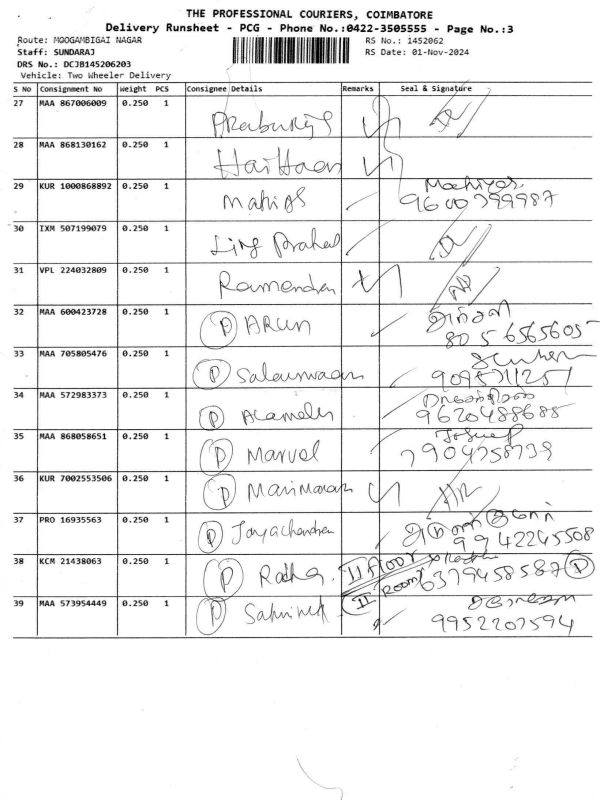 THE PROFESSIONAL COURIERS, COIMBATORE
Delivery Runsheet - PCG - Phone No.:0422-3505555 - Page No.:3
Route: MOOGAMBIGAI NAGAR RS No.: 1452062
Staff: SUNDARAJ RS Date: 01-Nov-2024
DRS No.: DCJB145206203
Vehicle: Two Wheeler Delivery
S No Consignment No Weight PCS Consignee Details Remarks Seal & Signature
27 MAA 867006009 0.250 1
28 MAA 868130162 0.250 1
29 KUR 1000868892 0.250 1 9600799987
30 IXM 507199079 0.250 1
31 VPL 224032809 0.250 1 Ramendran
32 MAA 600423728 0.250 1 P ARUN 80 5 6565605
33 MAA 705805476 0.250 1 P 9095711251
34 MAA 572983373 0.250 1 P Alamelu 9620488685
35 MAA 868058651 0.250 1 P Marvel 7904758739
36 KUR 7002553506 0.250 1 P
37 PRO 16935563 0.250 1 P Jayachandran 9942245508
38 KCM 21438063 0.250 1 P Radha II FLOOR II ROOM 6379458587 P
39 MAA 573954449 0.250 1 P 9952207594